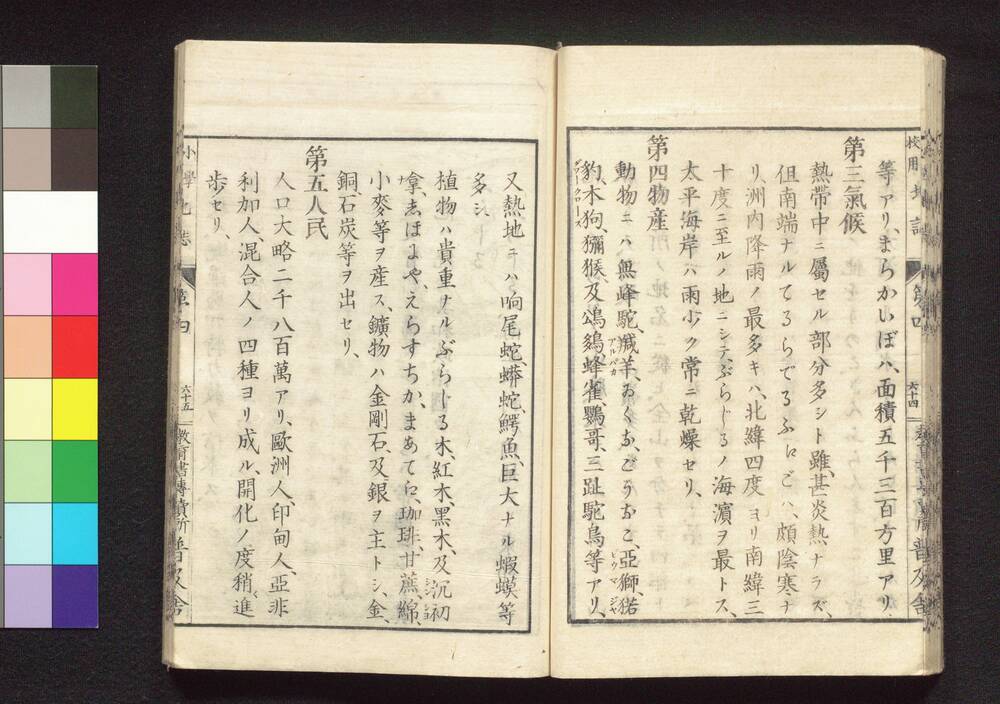 等アリ、まらかいぼハ、面積五千三百方里アリ、
第三氣候
熱帶中ニ屬セル部分多シト雖、甚炎熱ナラズ、
但南端ナルてるらでるふはごハ、頗陰寒ナ
リ、洲内降雨ノ最多キハ、北緯四度ヨリ南緯三
十度ニ至ルノ地ニシテ、ぶらじるノ海濱ヲ最トス、
太平海岸ハ雨少ク常ニ乾燥セリ、
第四物産
動物ニハ無峰駝、羊、亞獅、
アルパカ
ピウマ
豹、木狗、獼猴、及蜂雀、鸚哥、三趾駝鳥等アリ、
又熱地ニハ响尾蛇、蟒蛇、鰐魚、巨大ナル蝦蟆等
多シ、
植物ハ貴重ナルぶらじる木、紅木、黑木、及沉初
拿、まあては、珈琲、甘蔗、綿、
小麥等ヲ産ス、鑛物ハ金剛石、及銀ヲ主トシ、金、
銅、石炭等ヲ出セリ、
第五人民
人口大略二千八百萬アリ、歐洲人、印甸人、亞非
利加人、混合人ノ四種ヨリ成ル、開化ノ度稍進
歩セリ、
校用地誌
第四
六十四
普及舍
小學地誌
第四
六十五
教育書專賣所普及舍